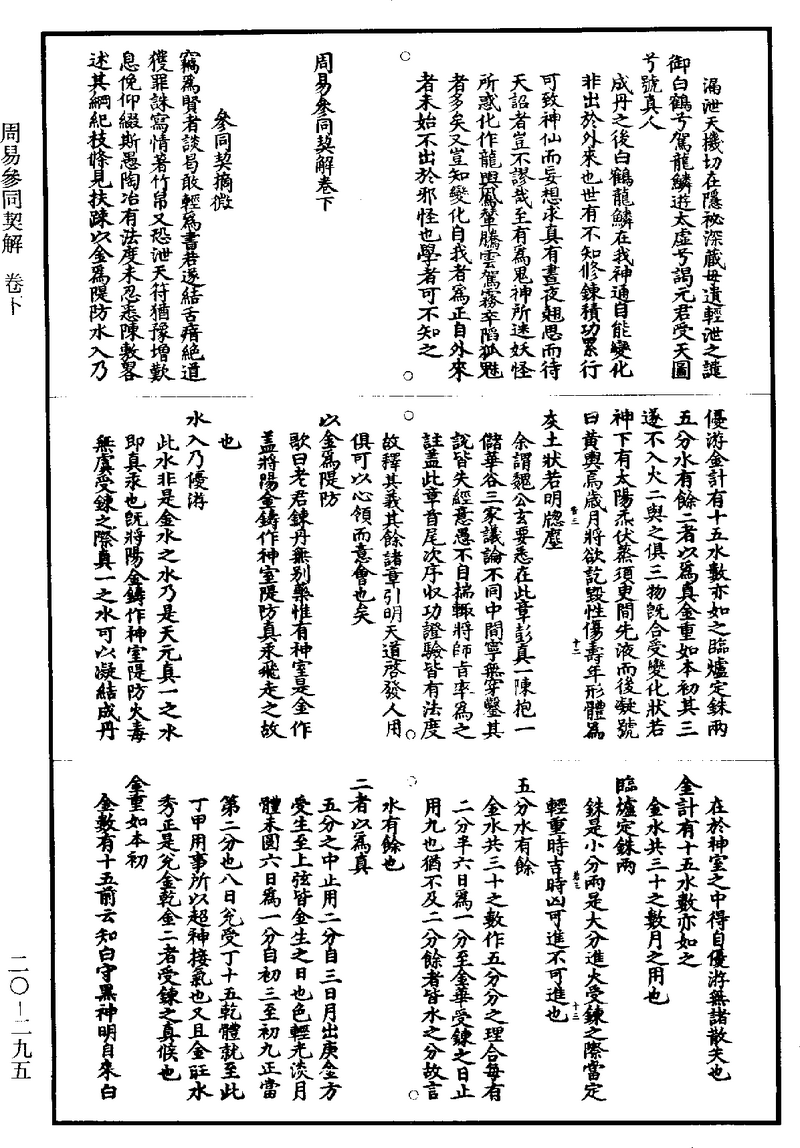 漏泄天機切在隱祕深藏毋遺輕泄之譴
御白鶴兮駕龍鱗遊太虛兮謁元君受天圖
兮號真人
成丹之後白鶴龍鱗在我神通自能變化
非出於外來也世有不知修鍊積功累行
可致神仙而妄想求真有晝夜翹思而待
天詔者豈不謬哉至有為鬼神所迷妖怪
所惑化作龍輿鳳輦騰雲駕霧卒陷狐魅
者多矣又豈知變化自我者為正自外來
者未始不出於邪怪也學者可不知之
周易參同契解卷下
參同契摘微
竊為賢者談曷敢輕為書若遂結舌瘖絕道
獲罪誅寫情著竹帛又恐泄天符猶豫增歎
息俛仰綴斯愚陶冶有法度未忍悉陳敷畧
述其綱紀枝條見扶疎以金為隄防水入乃
優游金計有十五水數亦如之臨爐定銖兩
五分水有餘二者以為真金重如本初其三
遂不入火二與之俱三物旣合受變化狀若
神下有太陽炁伏蒸須臾間先液而後凝號
曰黃輿焉歲月將欲訖毀性傷壽年形體為
灰土狀若明牕塵
余謂魏公玄要悉在此章彭真一陳抱一
儲華谷三家議論不同中間寧無穿鑿其
說皆失經意愚不自揣輒將師旨率為之
註蓋此章首尾次序收功證驗皆有法度
故釋其義其餘諸章引明天道啓發人用
俱可以心領而意會也矣
以金為隄防
歌曰老君鍊丹無別藥惟有神室是金作
蓋將陽金鑄作神室隄防真汞飛走之故
也
水入乃優游
此水非是金水之水乃是天元真一之水
即真汞也旣將陽金鑄作神室隄防火毒
無虞受鍊之際真一之水可以凝結成丹
在於神室之中得自優游無諸散失也
金計有十五水數亦如之
金水共三十之數月之用也
臨爐定銖兩
銖是小分兩是大分進火受鍊之際當定
輕重時吉時凶可進不可進也
五分水有餘
金水共三十之數作五分分之理合每有
二分半六日為一分至金華受鍊之日止
用九也猶不及二分餘者皆水之分故言
水有餘也
二者以為真
五分之中止用二分自三日月出庚金方
受生至上弦皆金生之日也色輕光淡月
體未圓六日為一分自初三至初九正當
第二分也八日兌受丁十五乾體就至此
丁甲用事所以超神接氣也又且金旺水
秀正是兌金乾金二者受鍊之真候也
金重如本初
金數有十五前云知白守黑神明自來白
周易參同契解 卷下
二〇－二九五